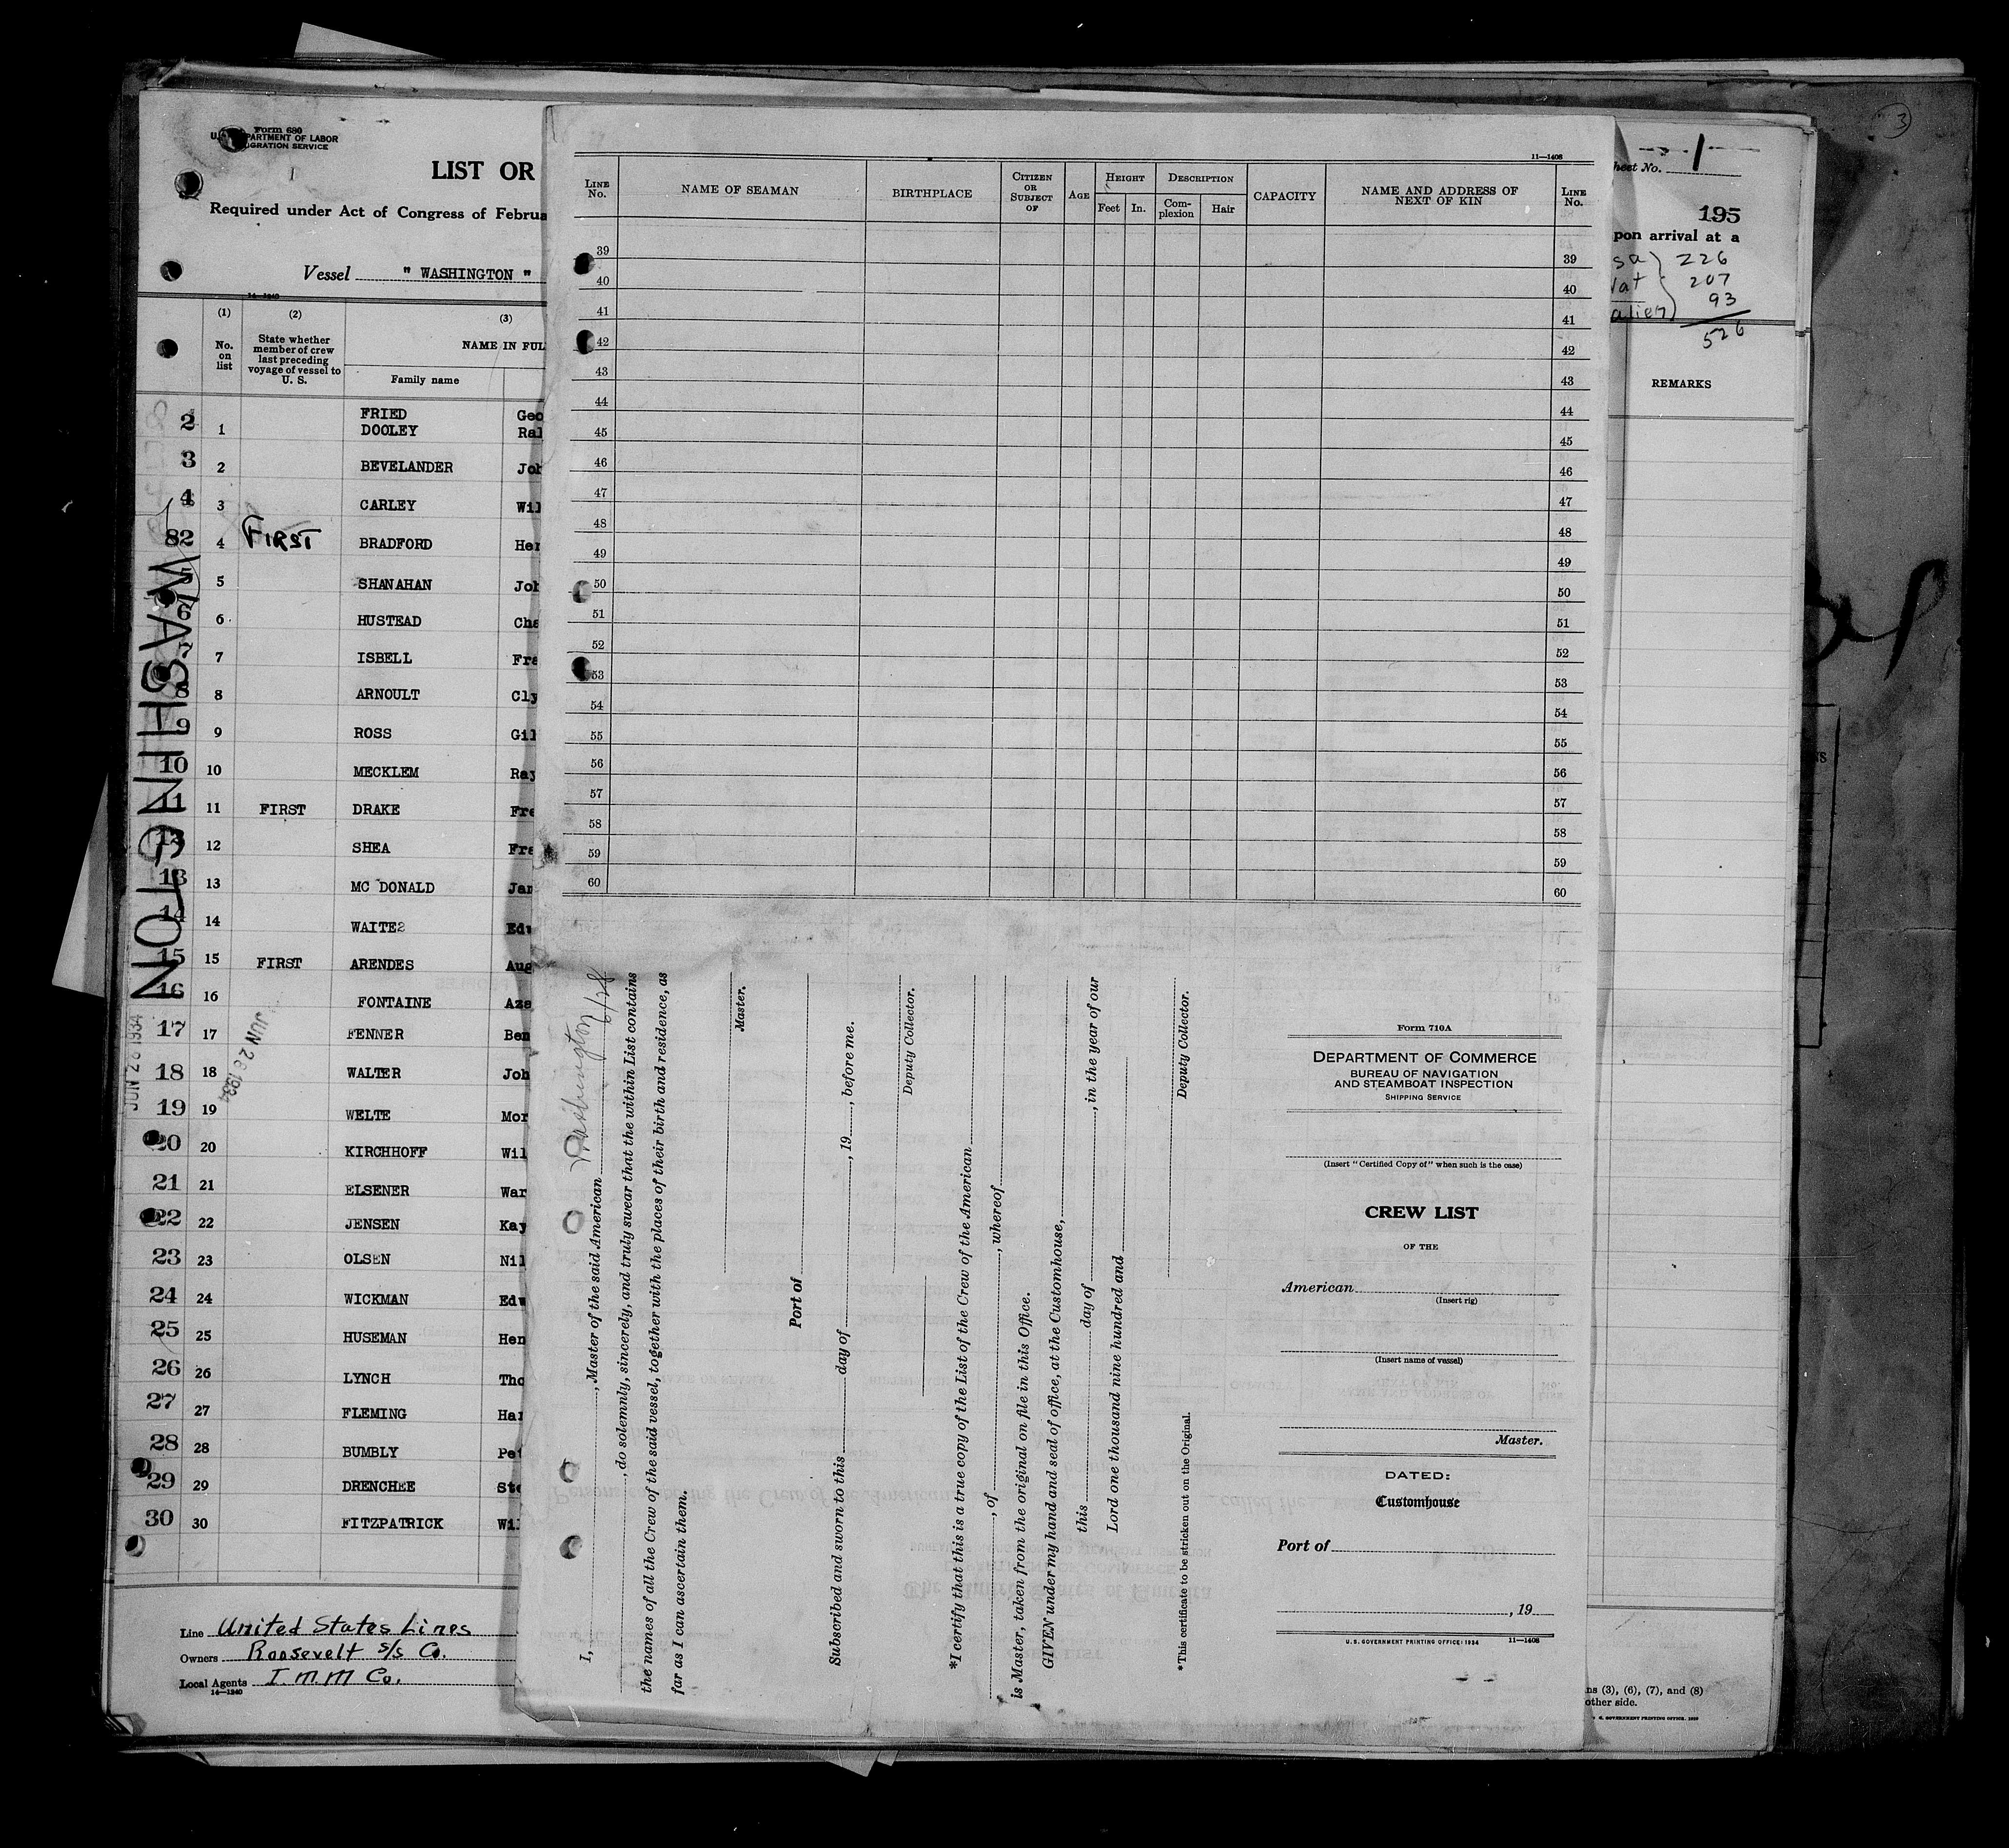 Form 680
U. PARTMENT OF LABOR
GRATION SERVICE
LIST OR
Required under Act of Congress of Februa
Vessel " WASHINGTON "
14—1240
(1)
No.
on
list
(2)
State whether
member of crew
last preceding
voyage of vessel to
U. S.
(3)
NAME IN FUL
Family name
2 FRIED Geo
1 DOOLEY Ral
3 2 BEVELANDER Joh
4 3 CARLEY Wil
82 4 FIRST BRADFORD Her
5 5 SHANAHAN Joh
6 6 HUSTEAD Cha
7 7 ISBELL Fra
8 8 ARNOULT Cly
9 9 ROSS Gil
10 10 MECKLEM Ray
11 11 FIRST DRAKE Fre
12 12 SHEA Fra
13 13 MC DONALD Jam
14 14 WAITES Edw
15 15 FIRST ARENDES Aug
16 16 FONTAINE Aza
17 17 FENNER Ben
18 18 WALTER Joh
19 19 WELTE Mor
20 20 KIRCHHOFF Wil
21 21 ELSENER War
22 22 JENSEN Kay
23 23 OLSEN Nil
24 24 WICKMAN Edw
25 25 HUSEMAN Hen
26 26 LYNCH Tho
27 27 FLEMING Har
28 28 BUMBLY Pet
29 29 DRENCHEE Ste
30 30 FITZPATRICK Wil
WASHINGTON
JUN 28 1934
JUN 28 1934
Line United States Lines
Owners Roosevelt S/S Co.
Local Agents I.M.M Co.
14—1240
11—1408
LINE No.
NAME OF SEAMAN
BIRTHPLACE
CITIZEN OR SUBJECT OF
AGE
HEIGHT
Feet
In.
DESCRIPTION
Complexion
Hair
CAPACITY
NAME AND ADDRESS OF NEXT OF KIN
LINE No.
39 39
40 40
41 41
42 42
43 43
44 44
45 45
46 46
47 47
48 48
49 49
50 50
51 51
52 52
53 53
54 54
55 55
56 56
57 57
58 58
59 59
60 60
Washington 6/28
I, , Master of the said American
, do solemnly, sincerely, and truly swear that the within List contains
the names of all the Crew of the said vessel, together with the places of their birth and residence, as
far as I can ascertain them.
Master.
Port of
Subscribed and sworn to this day of , 19 , before me.
Deputy Collector.
*I certify that this is a true copy of the List of the Crew of the American
, of , whereof
is Master, taken from the original on file in this Office.
GIVEN under my hand and seal of office, at the Customhouse,
this day of , in the year of our
Lord one thousand nine hundred and
Deputy Collector.
*This certificate to be stricken out on the Original.
Form 710A
DEPARTMENT OF COMMERCE
BUREAU OF NAVIGATION
AND STEAMBOAT INSPECTION
SHIPPING SERVICE
(Insert "Certified Copy of" when such is the case)
CREW LIST
OF THE
American
(Insert rig)
(Insert name of vessel)
Master.
DATED:
Customhouse
Port of
, 19
U. S. GOVERNMENT PRINTING OFFICE: 1934 11—1408
3
heet No. 1
195
pon arrival at a
sa 226
Nat 207
alien 93
526
REMARKS
ns (3), (6), (7), and (8)
other side.
GOVERNMENT PRINTING OFFICE